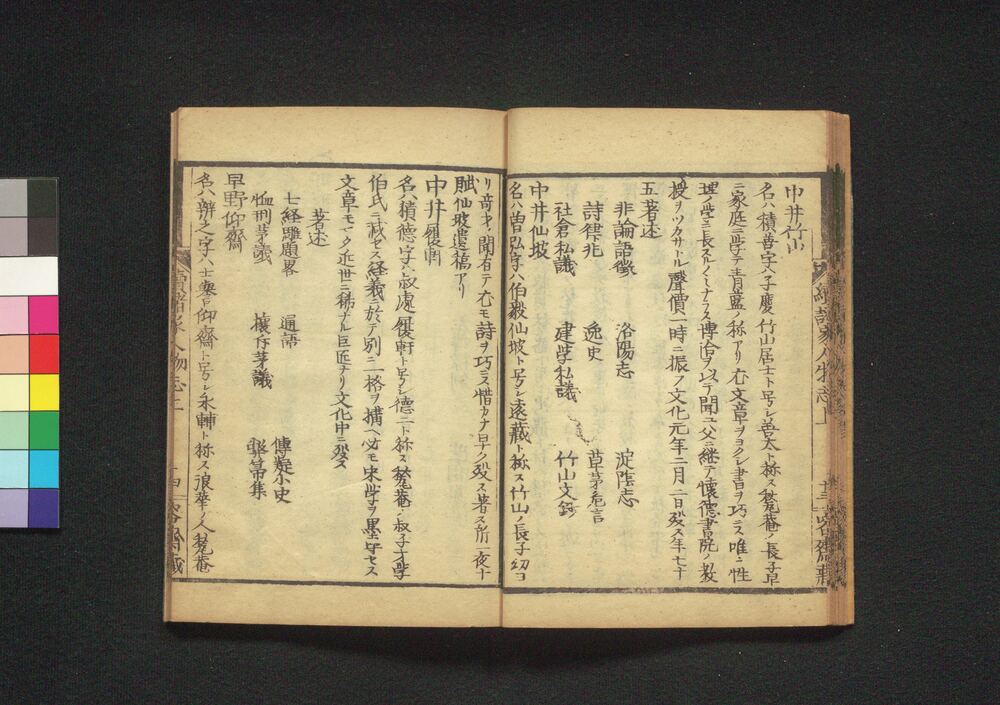 中井竹山
名ハ積善字ハ子慶竹山居士ト号シ善太ト称ス甃菴ノ長子早
ニ家庭ニ学テ青藍ノ称アリ尤文章ヲヨクシ書ヲ巧ニス唯ニ性
理ノ学ニ長スルノミナラス博洽ヲ以テ聞ユ父ニ継テ懐徳書院ノ教
授ヲツカサトル声價一時ニ振フ文化元年二月二日歿ス年七十
五著述
非論語徴 洛陽志 淀陰志
詩律兆 逸史 草茅危言
社倉私議 建学私議 竹山文鈔
中井仙坡
名ハ曽弘字ハ伯毅仙坡ト号シ遠蔵ト称ス竹山ノ長子幼ヨ
リ奇才ノ聞有テ尤モ詩ヲ巧ニス惜カナ早ク歿ス著ス所一夜十
賦仙坡遺稿アリ
中井履軒
名ハ積徳字ハ叔處履軒ト号シ徳二ト称ス甃菴ノ叔子才学
伯氏ニ減セス経義ニ於テ別ニ一格ヲ構ヘ必モ宋学ヲ墨守セス
文章モマタ近世ニ稀ナル巨匠ナリ文化中ニ歿ス
著述
七経雕題畧 通語 傳疑小史
恤刑茅議 攘斥茅議 弊帚集
早野仰齋
名ハ辨之字ハ士 仰齋ト号シ永輔ト称ス浪華ノ人甃菴
續諸家人物志上
十三
續諸家人物志上
十四